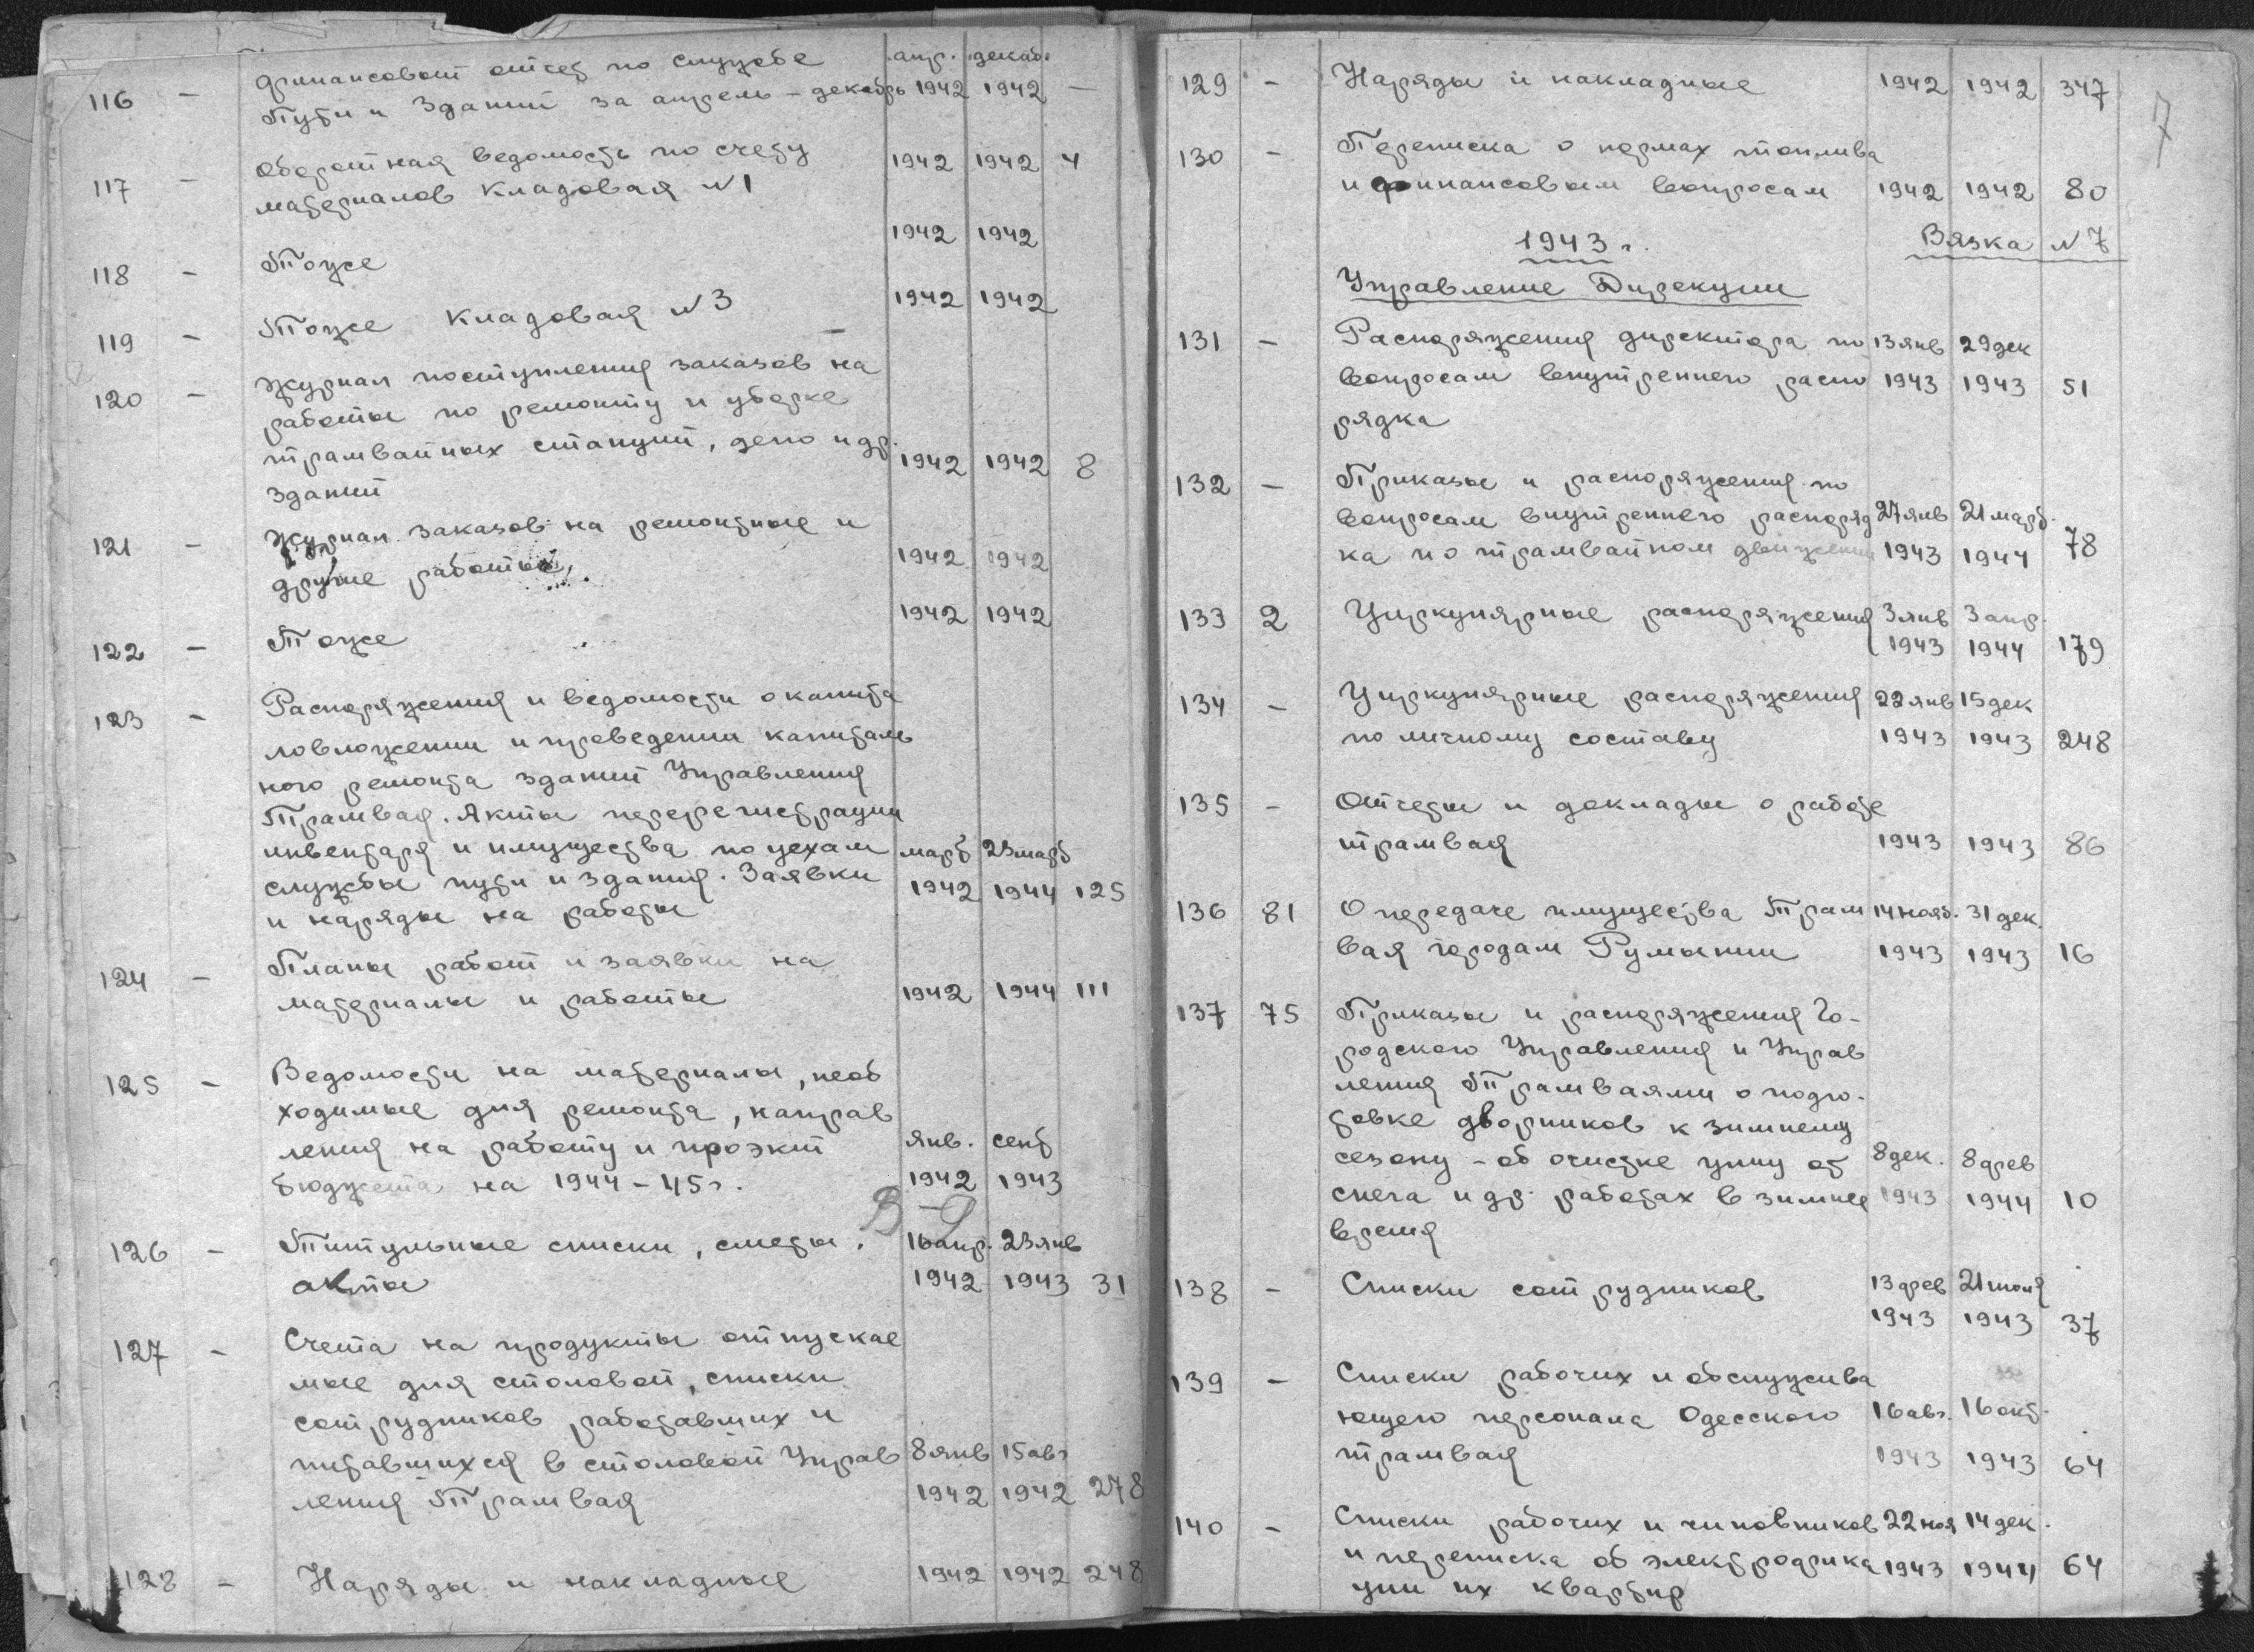 116 – Финансовый отчет по службе апр. декаб.
Пути и Зданий за апрель – декабрь 1942 1942 –
117 – Оборотная ведомость по счету 1942 1942 4
материалов Кладовая №1
118 – Тоже 1942 1942
119 – Тоже Кладовая №3 – 1942 1942
120 – Журнал поступления заказов на
работы по ремонту и уборке
трамвайных станций, депо и др.
зданий 1942 1942 8
121 – Журнал заказов на ремонтные и
другие работы, 1942 1942
122 – Тоже 1942 1942
123 – Распоряжения и ведомости о капита
ловложении и проведении капиталь
ного ремонта зданий Управления
Трамвая. Акты перерегистрации
инвентаря и имущества по цехам март 23 март
службы пути и здания. Заявки 1942 1944 125
и наряды на работы
124 – Планы работ и заявки на
материалы и работы 1942 1944 111
125 – Ведомости на материалы, необ
ходимые для ремонта, направ
ления на работу и проэкт янв. сент
бюджета на 1944–45г. 1942 1943
126 – Титульные списки, сметы, 16 апр. 23 янв
акты 1942 1943 31
127 – Счета на продукты отпускае
мые для столовой, списки
сотрудников работавших и
питавшихся в столовой Управ 8 янв 15 авг
ления Трамвая 1942 1942 278
128 – Наряды и накладные 1942 1942 248
7
129 – Наряды и накладные 1942 1942 347
130 – Переписка о нормах топлива
и финансовым вопросам 1942 1942 80
1943 г. Вязка №7
Управление Дирекции
131 – Распоряжения директора по 13 янв 29 дек
вопросам внутреннего распо 1943 1943 51
рядка
132 – Приказы и распоряжения по
вопросам внутреннего распоряд 27 янв 21 март.
ка по трамвайном движении 1943 1944 78
133 2 Циркулярные распоряжения 3 янв 3 апр.
1943 1944 179
134 – Циркулярные распоряжения 22 янв 15 дек
по личному составу 1943 1943 248
135 – Отчеты и доклады о работе
трамвая 1943 1943 86
136 81 О передаче имущества Трам 14 нояб. 31 дек.
вая городам Румынии 1943 1943 16
137 75 Приказы и распоряжения Го-
родского Управления и Управ
ления Трамваями о подго-
товке дворников к зимнему
сезону – об очистке улиц от 8 дек. 8 фев
снега и др. работах в зимнее 1943 1944 10
время
138 – Списки сотрудников 13 фев 21 июля
1943 1943 37
139 – Списки рабочих и обслужива
ющего персонала Одесского 16 авг. 16 окт.
трамвая 1943 1943 64
140 – Списки рабочих и чиновников 22 ноя 14 дек.
и переписка об электрофика 1943 1944 64
ции их квартир